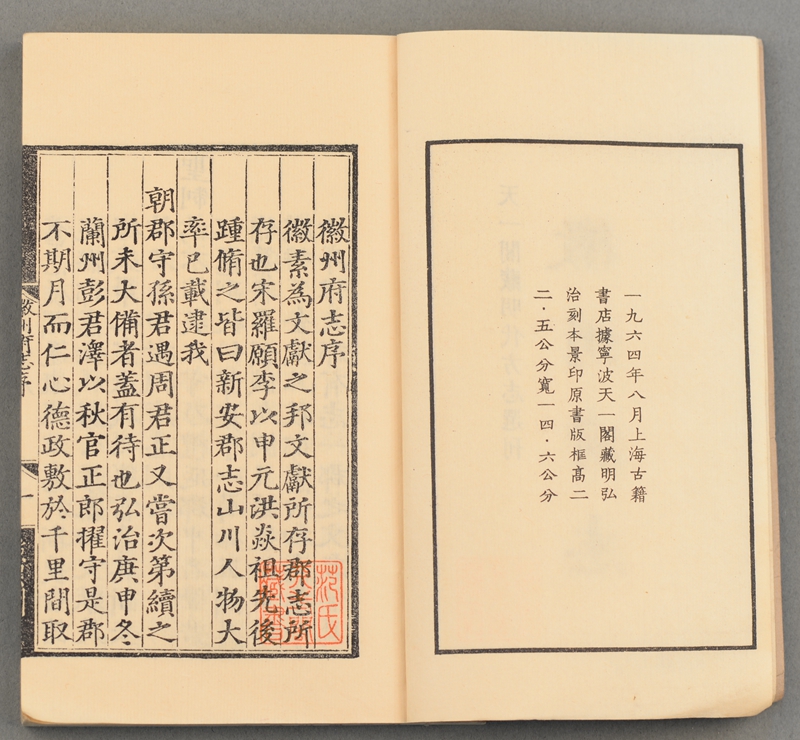 一九六四年八月上海古籍
書店據寧波天一閣藏明弘
治刻本景印原書版框高二
二·五公分寬一四·六公分
徽州府志序
徽素為文獻之邦文獻所存郡志所
存也宋羅願李以申元洪焱祖先後
踵脩之皆曰新安郡志山川人物大
率已載逮我
朝郡守孫君遇周君正又嘗次第續之
所未大備者蓋有待也弘治庚申冬
蘭州彭君澤以秋官正郎擢守是郡
不期月而仁心德政敷於千里間取
徽州府志序
一
范氏
藏書